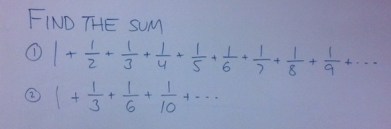 FIND THE SUM
① 1 + 1/2 + 1/3 + 1/4 + 1/5 + 1/6 + 1/7 + 1/8 + 1/9 + ...
② 1 + 1/3 + 1/6 + 1/10 + ...